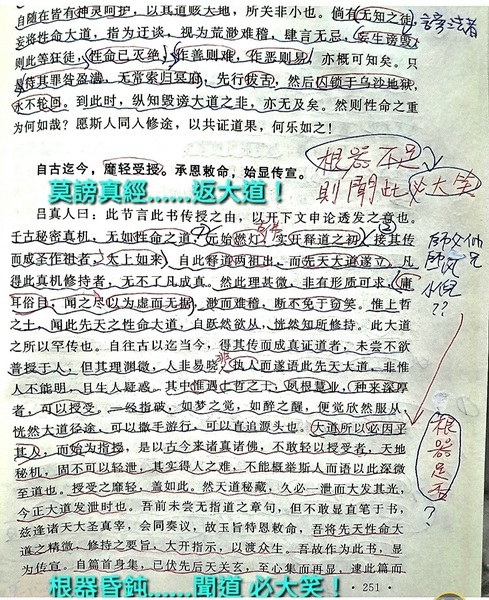 自随在皆有神灵呵护，以其道贱大地，所关非小也。倘有无知之徒，
妄将性命大道，指为迂谈，视为荒渺难稽，肆言无忌，妄生谤毁，
则此等狂徒，性命已灭绝，作善则难，作恶则易，亦概可知矣。只
待其罪咎盈满，无常索归冥府，先行拔舌，然后囚锁于乌沙地狱，
永不轮回。到此时，纵知毁谤大道之非，亦无及矣。然则性命之重
为何如哉？愿斯人同入修途，以共证道果，何乐如之！
谤法者
自古迄今，靡轻受授。承恩敕命，始显传宣。
根器不足
則聞此必大笑
莫謗真經......返大道！
吕真人曰：此节言此书传授之由，以开下文申论透发之意也。
千古秘密真机，无如性命之道，元始燃灯，实开释道之初，接其传
而成圣作祖者，太上如来，自此释道两祖出，而先天大道遂立，凡
得此真机修持者，无不了凡成真。然此理甚微，非有形质可求，庸
耳俗目，闻之尽以为虚而无据，渺而难稽，断不免于窃笑。惟上哲
之士，闻此先天之性命大道，自既然欲从，恍然知所修持。此大道
之所以罕传也。自往古以迄当今，得其传而成真证道者，未尝不欲
普授于人，但其理渊微，人非易晓，执人而遂语此先天大道，非惟
人不能明，且生人疑惑。其中惟遇上哲之士，夙根慧业，种来深厚
者，可以授受，一经指破，如梦之觉，如醉之醒，便觉欣然服从，
恍然大道径途，可以撒手游行，可以直追源头也。大道所以必因乎
其人，而始为指授，是以古今来诸真诸佛，不敢轻以授受者，天地
秘机，固不可以轻泄，其实得人之难，不能概举斯人而语以此深微
至道也。授受之靡轻，盖如此。然天道秘藏，久必一泄而大发其光，
今正大道发泄时也。吾前未尝无指道之章句，但不敢显直笔于书，
兹逢诸天大圣真宰，会同奏议，故玉旨特恩敕命，吾将先天性命大
道之精微，修持之要旨，大开指示，以渡众生。吾故作为此书，显
为传宣。自篇首身集，已伏先后天关玄，至心集而再显，逮此篇而
根器是否？
根器昏鈍......聞道 必大笑！
· 251 ·